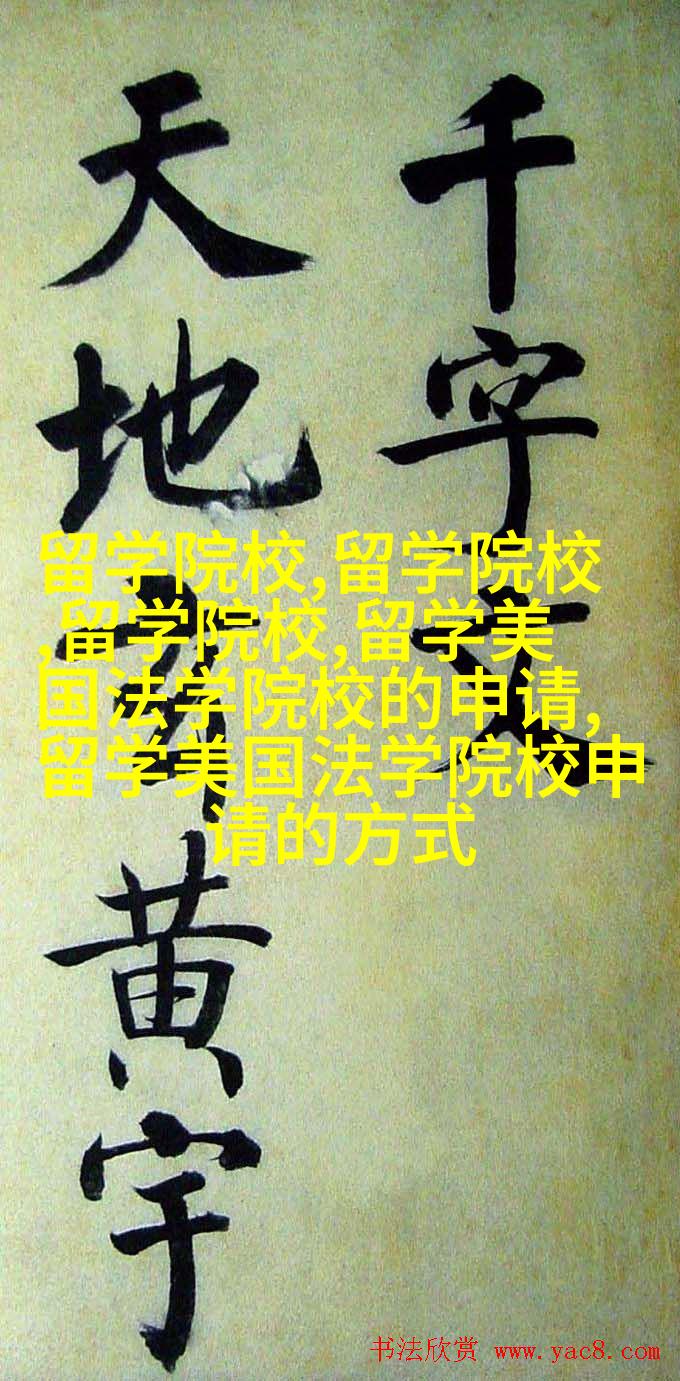 千字文
天地玄黄宇
留学院校,留学院校
,留学院校,留学美
国法学院校的申请,
留学美国法学院校申
请的方式
书法欣赏 www.yac8.com